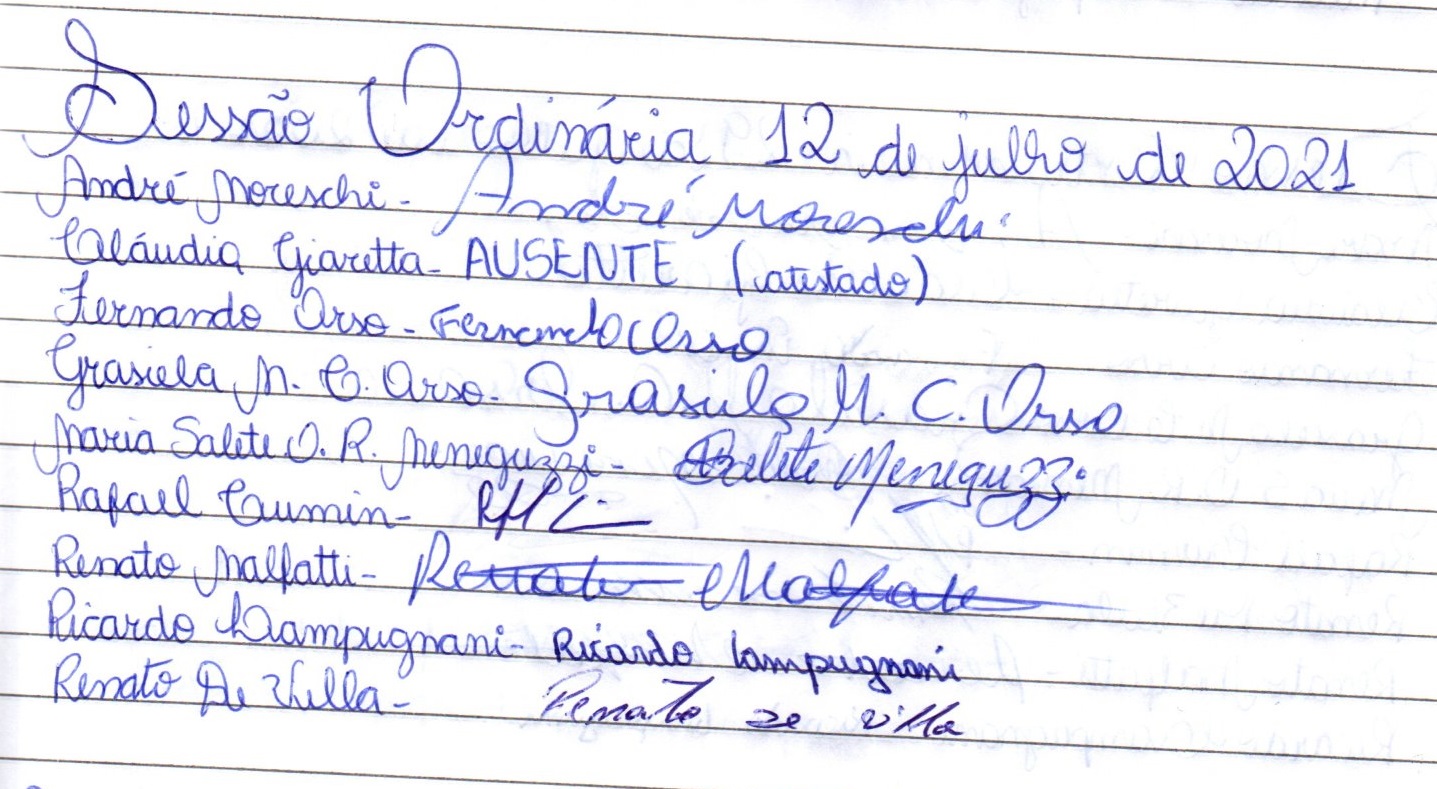 Sessão Ordinária 12 de julho de 2021
André Moreschi - André Moreschi
Cláudia Giaretta - AUSENTE (atestado)
Fernando Orso - Fernando Orso
Grasiela M. C. Orso - Grasiela M. C. Orso
Maria Salete O. R. Meneguzzi - Salete Meneguzzi
Rafael Cumin -
Renato Malfatti - Renato Malfatti
Ricardo Lampugnani - Ricardo Lampugnani
Renato De Villa - Renato de villa